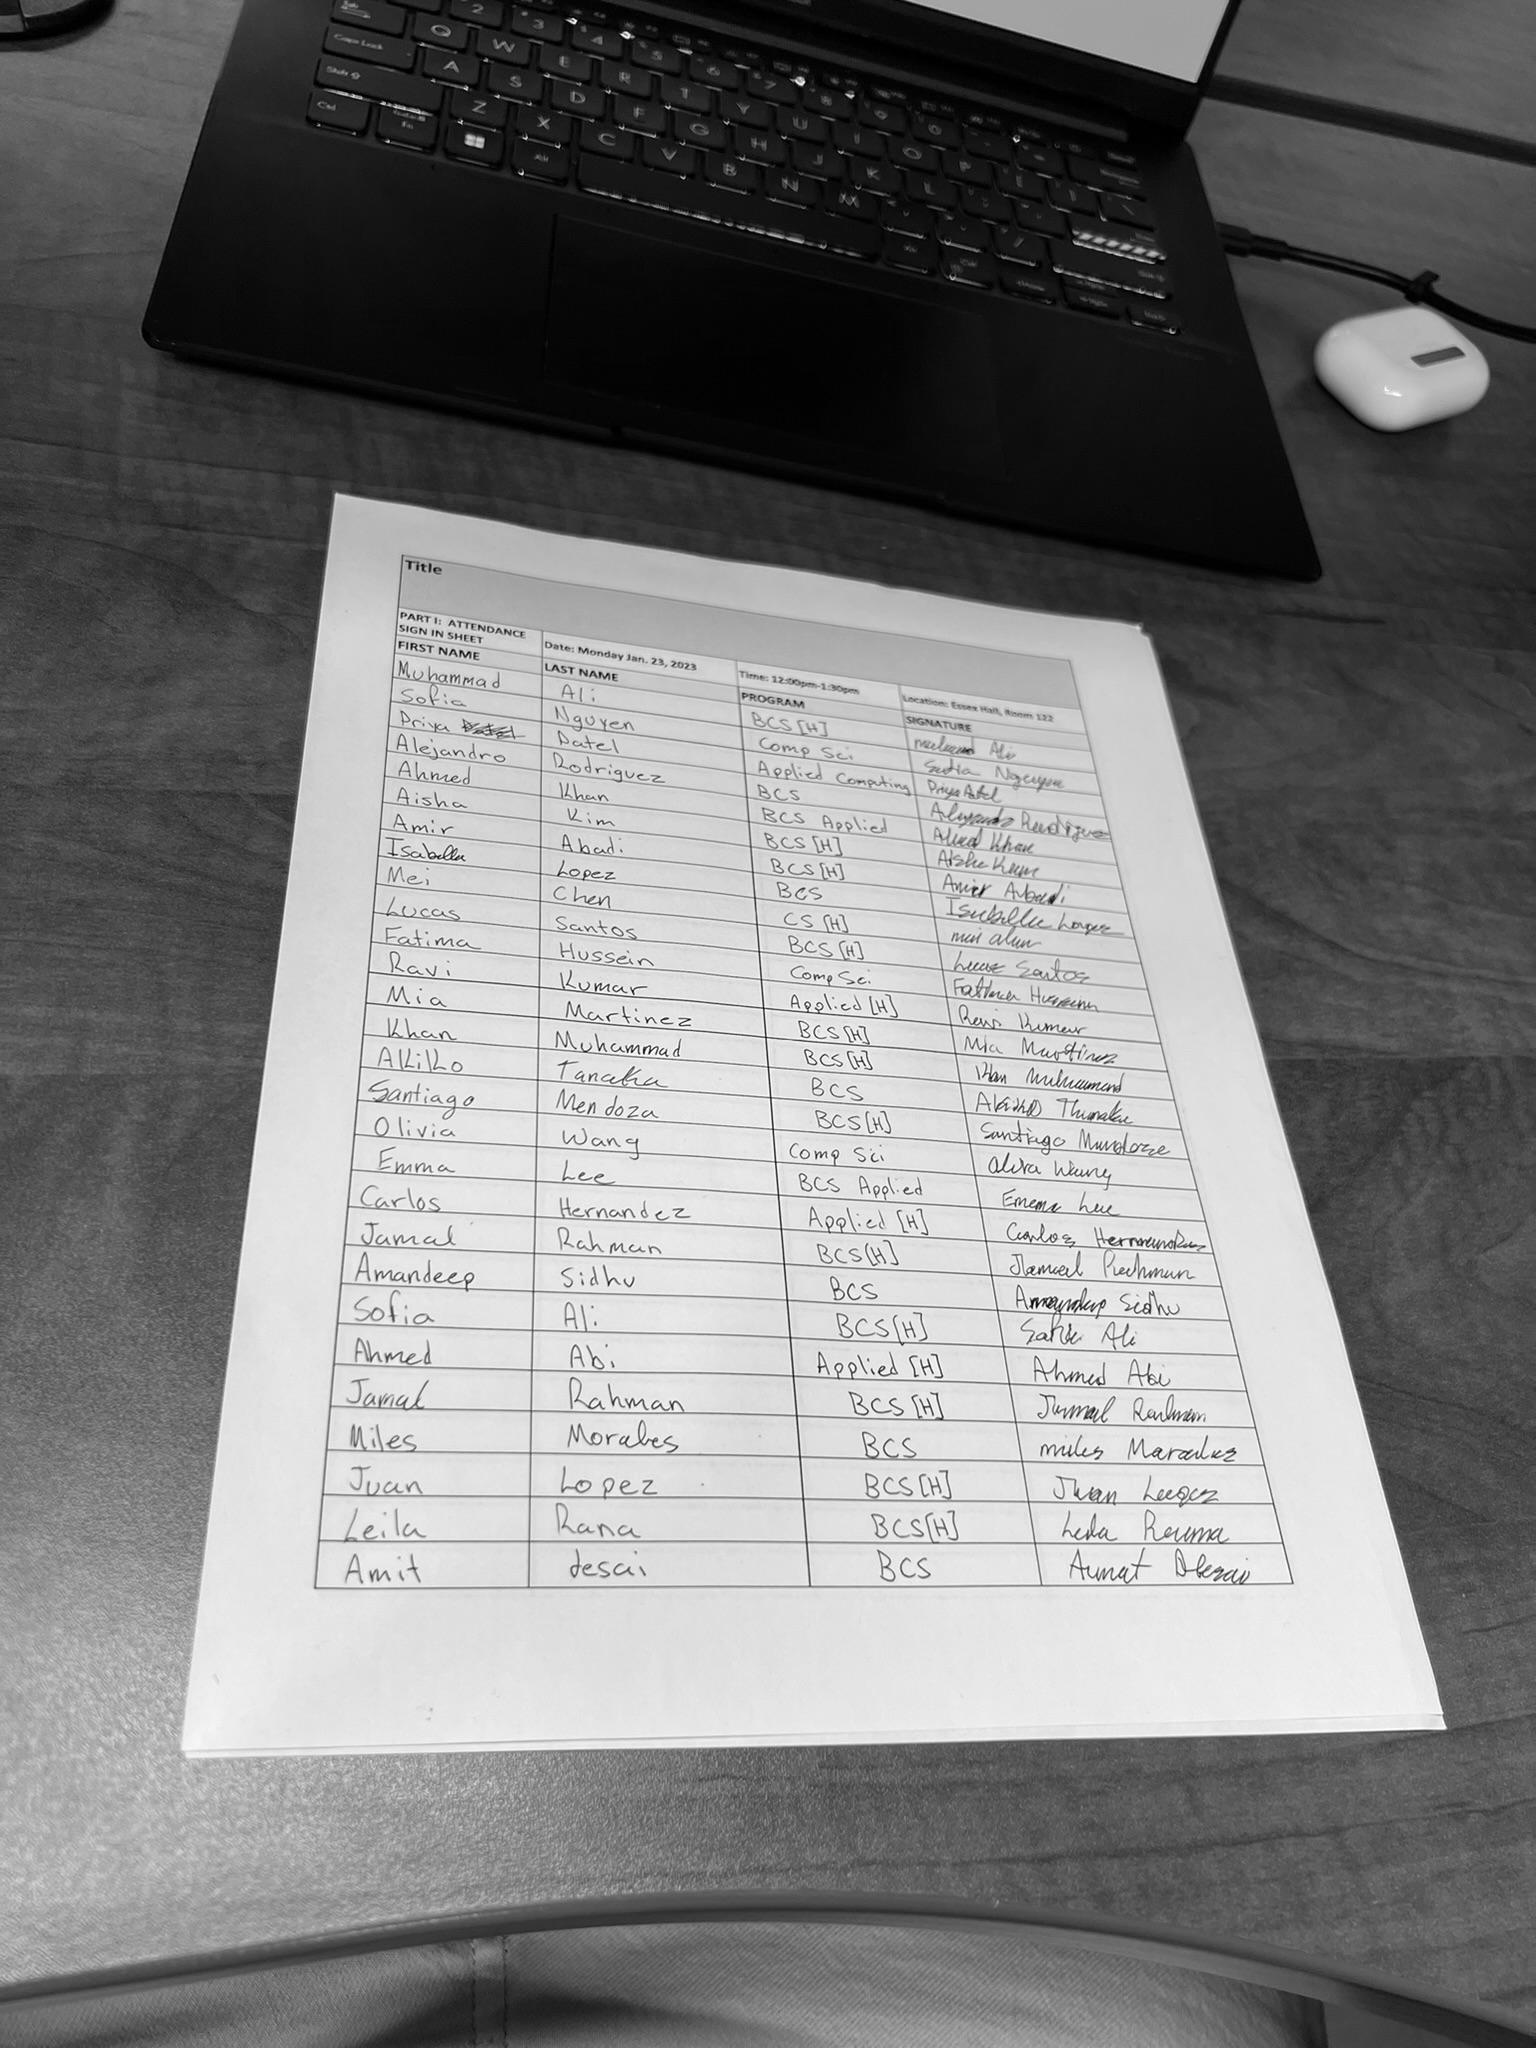 Title
PART I: ATTENDANCE SIGN IN SHEET Date: Monday Jan. 23, 2023 Time: 12:00pm-1:30pm Location: Essex Hall, Room 122
FIRST NAME LAST NAME PROGRAM SIGNATURE
Muhammad Ali BCS [H] Ali
Sofia Nguyen Comp Sci Sofia Nguyen
Priya Patel Applied Computing Priya Patel
Alejandro Rodriguez BCS Alejandro Rodriguez
Ahmed Khan BCS Applied Ahmed Khan
Aisha Kim BCS [H] Aisha Kim
Amir Abadi BCS [H] Amir Abadi
Isabella Lopez BCS Isabella Lopez
Mei Chen CS [H]
Lucas Santos BCS [H] Lucas Santos
Fatima Hussein Comp Sci Fatima Hussein
Ravi Kumar Applied [H] Ravi Kumar
Mia Martinez BCS [H] Mia Martinez
Khan Muhammad BCS [H] Khan Muhammad
Akiko Tanaka BCS Akiko
Santiago Mendoza BCS [H] Santiago Mendoza
Olivia Wang Comp Sci Wang
Emma Lee BCS Applied Emema Lee
Carlos Hernandez Applied [H] Carlos Hernandez
Jamal Rahman BCS [H] Jamal Rahman
Amandeep Sidhu BCS Amandeep Sidhu
Sofia Ali BCS [H] Sofia Ali
Ahmed Abi Applied [H] Ahmed Abi
Jamal Rahman BCS [H] Jamal Rahman
Miles Morales BCS miles Morales
Juan Lopez BCS [H] Juan Lopez
Leila Rana BCS [H] Leila
Amit desai BCS Desai